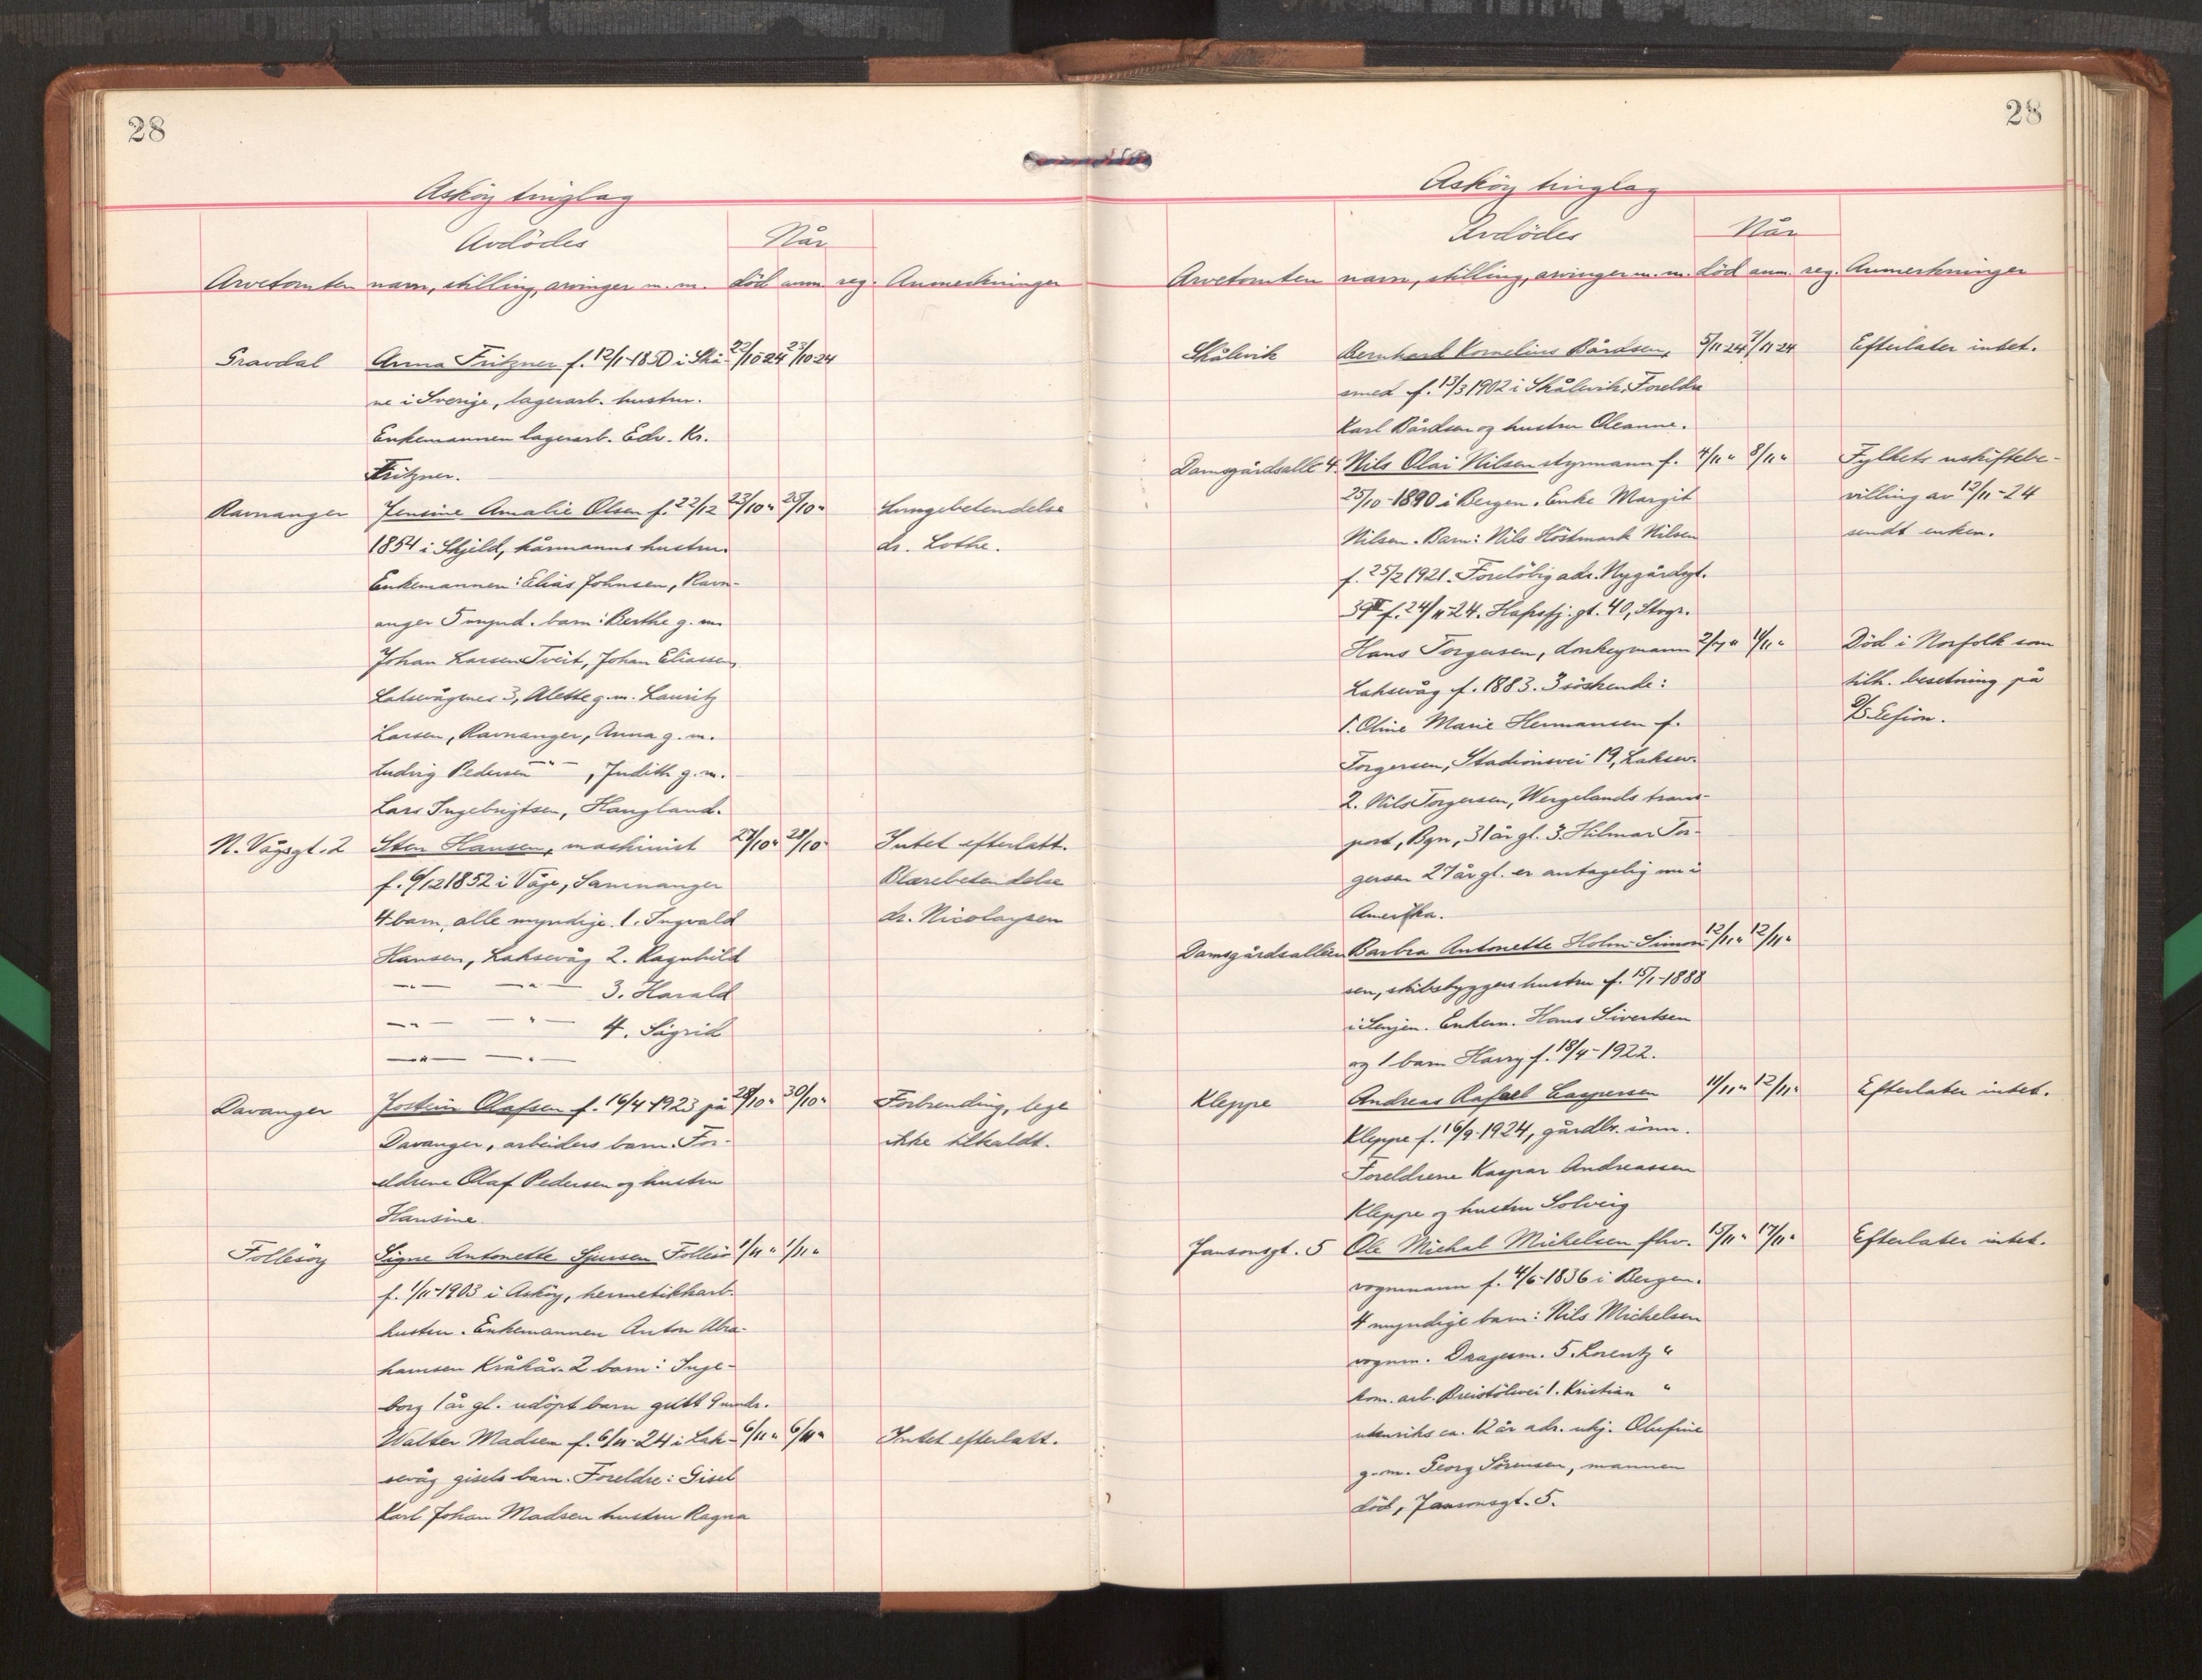 28
Asköy tinglag
Avdödes
Når
Arvetomten navn, stilling, arvinger m. m. död anm. reg. Anmerkninger
Gravdal Anna Fritzner f. 12/1-1850 i Skå- 22/10-24 23/10-24
ne i Sverige, lagerarb. hustru.
Enkemannen lagerarb. Edv. Kr.
Fritzner.
Ravnanger Jensine Amalie Olsen f. 22/12 23/10 " 25/10 " Lungebetendelse
1854 i Skjeld, kårmanns hustru. dr. Lothe.
Enkemannen: Elias Johnsen, Ravn-
anger 5 mynd. barn: Berthe g. m.
Johan Larsen Tveit, Johan Eliassen,
Laksevågnes 3, Alette g. m. Lauritz
Larsen, Ravnanger, Anna g. m.
Ludvig Pedersen — " — , Judith g. m.
Lars Ingebrigtsen, Haugland.
N. Vågsgt. 2 Sten Hansen, maskinist 27/10 " 28/10 " Intet efterlatt.
f. 6/12 1852 i Våge, Samnanger Blærebetendelse
4 barn, alle myndige. 1. Ingvald dr. Nicolaysen
Hansen, Laksevåg 2. Ragnhild
— " — — " — 3. Harald
— " — — " — 4. Sigrid
— " — — " —
Davanger Jostein Olafsen f. 16/4-1923 på 28/10 " 30/10 " Forbrending, lege
Davanger, arbeiders barn. For- ikke tilkaldt.
eldrene Olaf Pedersen og hustru
Hansine.
Follesöy Signe Antonette Sjursen Follesö 1/11 " 1/11 "
f. 1/11-1903 i Asköy, hermetikkarb.
hustru. Enkemannen Anton Abra-
hamsen Kråkås. 2 barn: Inge-
borg 1 år gl. udöpt barn gutt
Walter Madsen f. 6/11-24 i Lak- 6/11 " 6/11 " Intet efterlatt.
sevåg gisels barn. Foreldre: Gisel
Karl Johan Madsen hustru Ragna
28
Asköy tinglag
Avdödes
Når
Arvetomten navn, stilling, arvinger m. m. död anm. reg. Anmerkninger
Skålevik Bernhard Kornelius Bårdsen, 5/11-24 7/11-24 Efterlater intet.
smed f. 13/3 1902 i Skålevik. Foreldre
Karl Bårdsen og hustru Oleanne.
Damsgårdsalle 4. Nils Olai Nilsen styrmann f. 4/11 " 8/11 " Fylkets uskiftebe-
25/10-1890 i Bergen. Enke Margit villing av 12/11-24
Nilsen. Barn: Nils Höstmark Nilsen sendt enken.
f. 25/2 1921. Forelöbig adr. Nygårdsgt.
39 II f. 24/11-24. Hafrsfj. gt. 40, Stvgr.
Hans Torgersen, donkeymann 2/7 " 11/11 " Död i Norfolk som
Laksevåg f. 1883. 3 söskende: tilh. besetning på
1. Oline Marie Hermansen f. D/S Gefion.
Torgersen, Stadionsvei 19, Laksev.
2. Nils Torgersen, Wergelands trans-
port, Bgn, 31 år gl. 3. Hilmar Tor-
gersen 27 år gl. er antagelig nu i
Amerika.
Damsgårdsalleen Barbra Antonette Holm-Simon- 12/11 " 12/11 "
sen, skibsbyggers hustru f. 15/1-1888
i Senjen. Enkem. Hans Sivertsen
og 1 barn Harry f. 18/4-1922.
Kleppe Andreas Rafael Caspersen 11/11 " 12/11 " Efterlater intet.
Kleppe f. 16/9-1924, gårdbr. sönn.
Foreldrene Kaspar Andreassen
Kleppe og hustru Solveig
Jansonsgt. 5 Ole Michal Michelsen fhv. 15/11 " 17/11 " Efterlater intet.
vognmann f. 4/6-1836 i Bergen.
4 myndige barn: Nils Michelsen
vognm. Dragesm. 5. Lorentz "
kom. arb. Breistölsvei 1. Kristian "
utenriks ca. 12 år adr. ukj. Olufine
g. m. Georg Sörensen, mannen
död, Jansonsgt. 5.